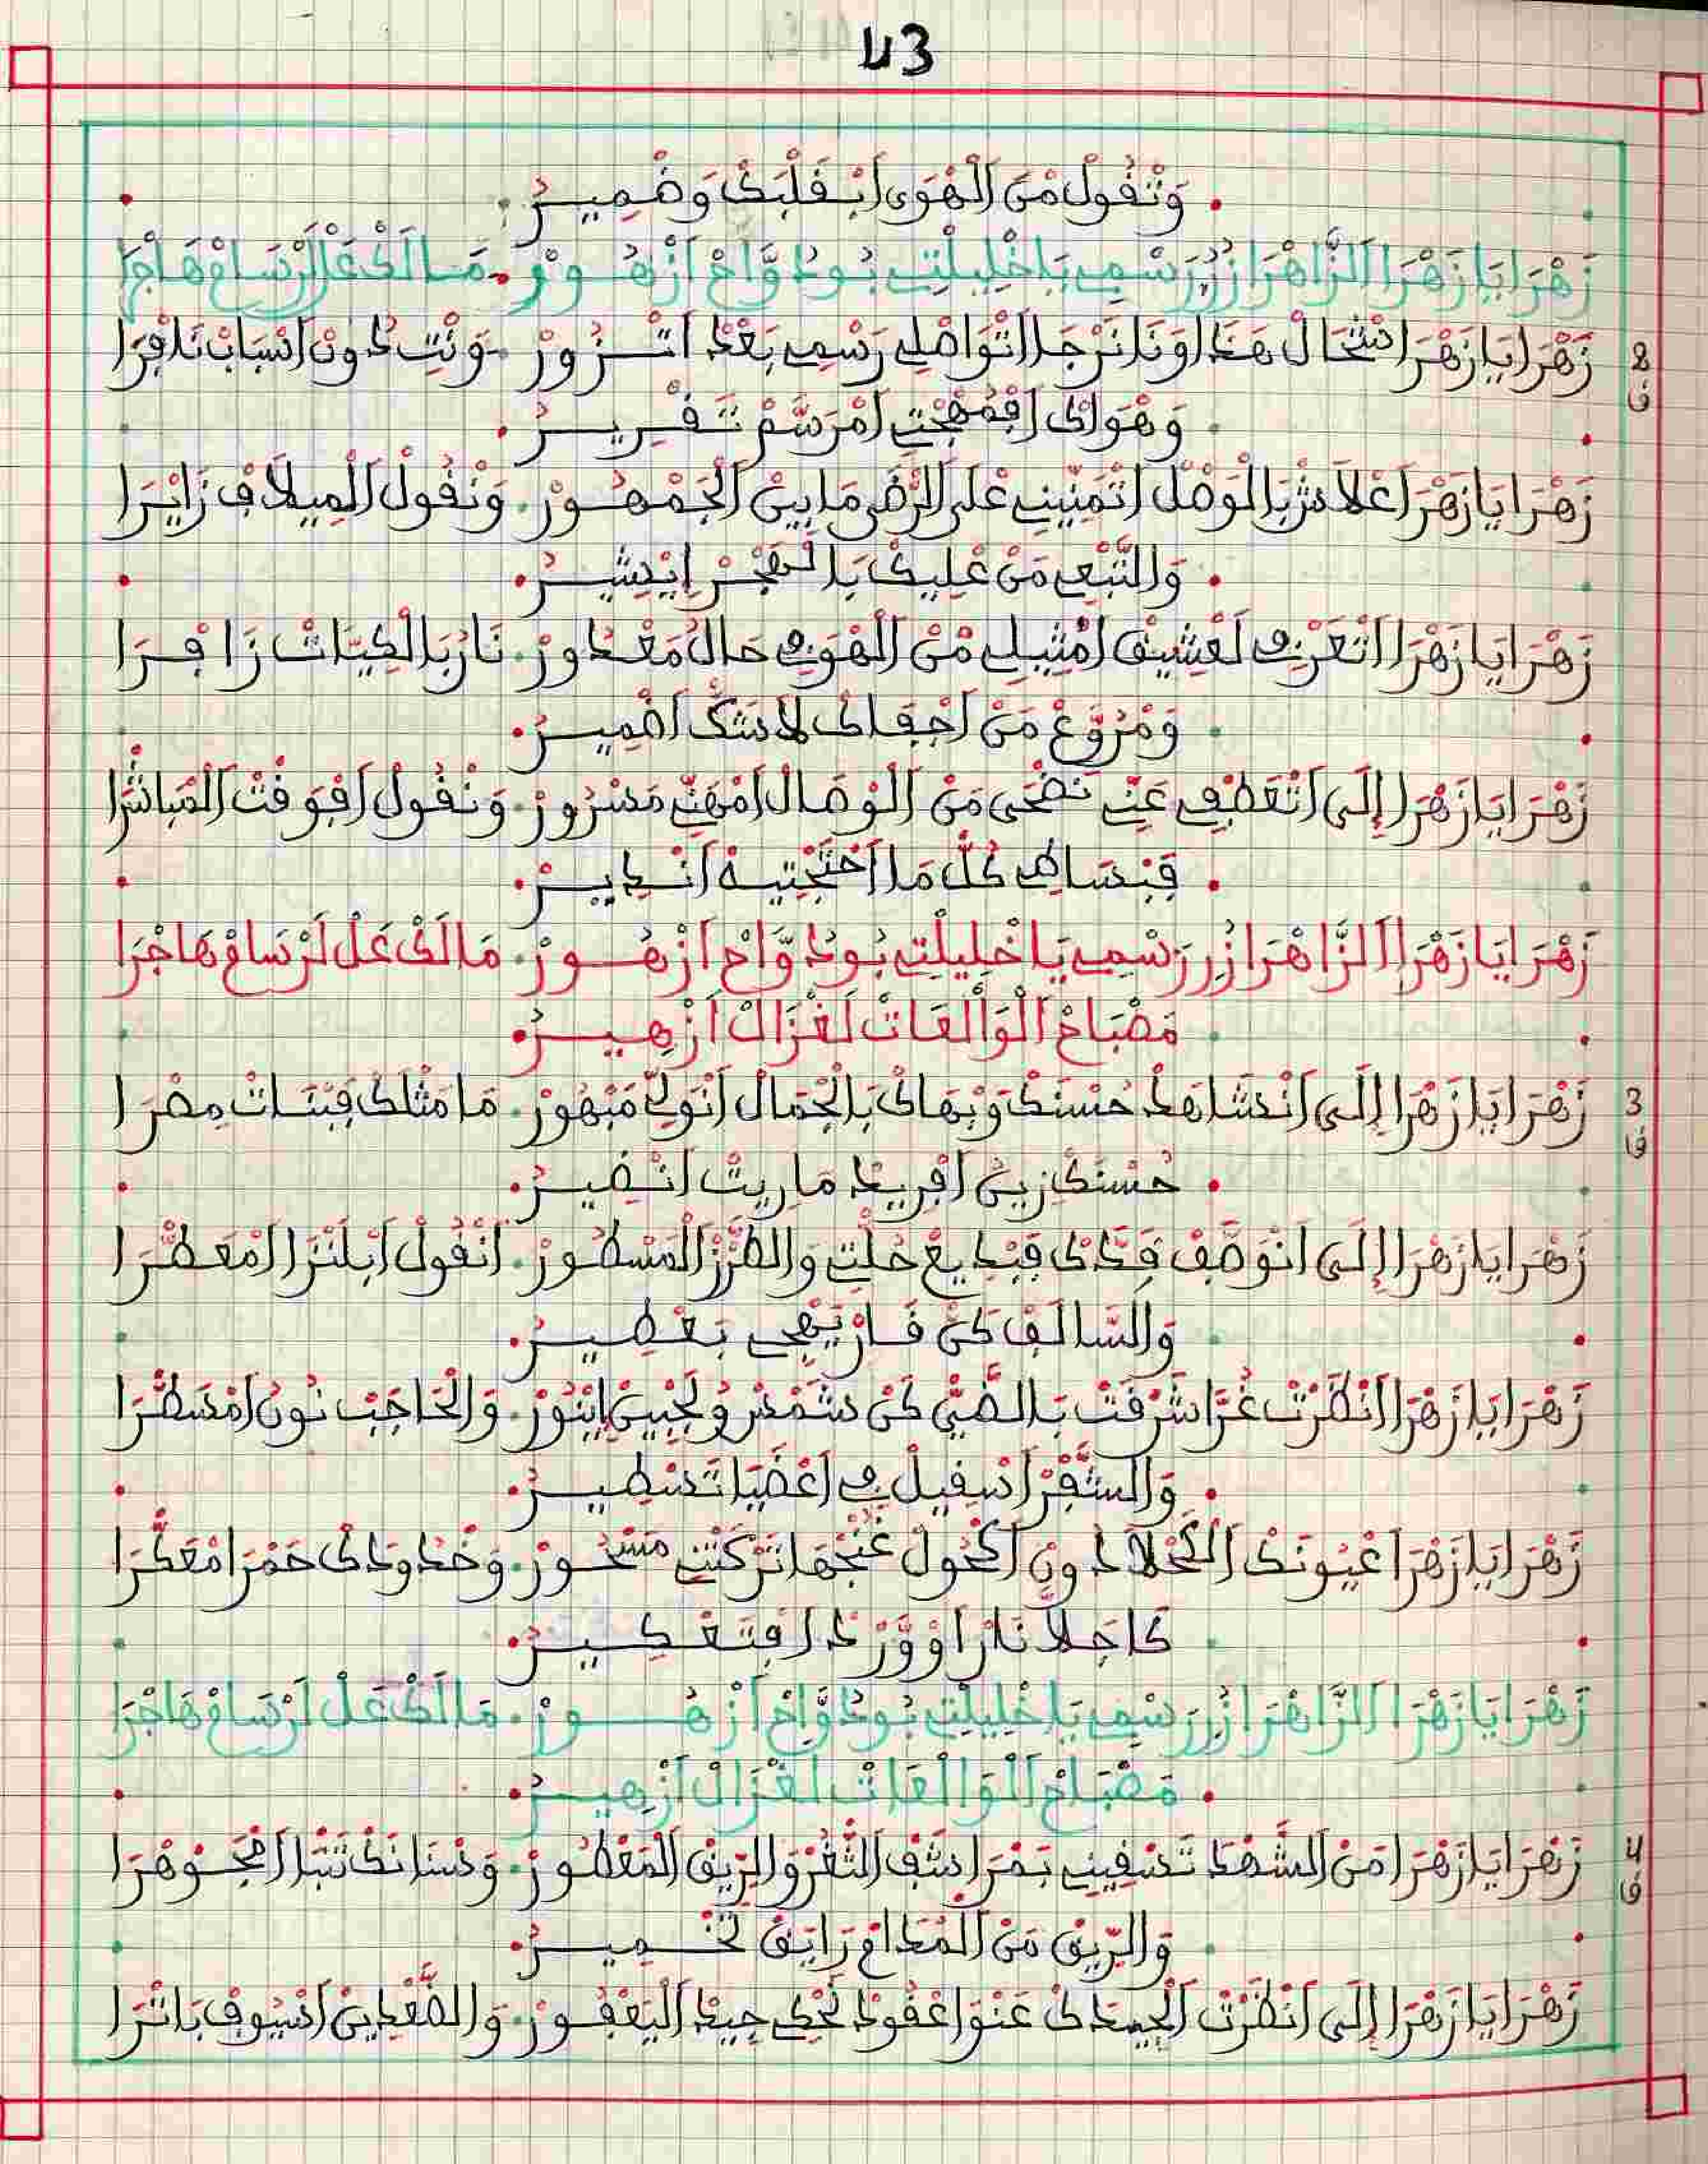 43
وَنْقُولْ مْنَ الْهْوَى اَبْقَلْبَكْ وَضْمِيرْ
زَهْرَا يَا زَهْرَا الزَّاهْرَا زُرِ رَسْمِي يَا خْلِيلْتِي بُودْوَّاحْ اَزْهُورْ. مَا لَكْ عَلْ لَرْسَامْ هَاجْرَا
8 ق زَهْرَا يَا زَهْرَا اشْحَالْ هَذَا وَنَا نَرْجَا اتْوَاصْلِي رَسْمِي بَعْدْ اتْزُورْ. وَنْتِ دُونْ اَسْبَابْ نَافْرَا
وَهْوَاكْ اَفْمُهْجْتِي اَمْرَسَّمْ تَقْرِيرْ
زَهْرَا يَا زَهْرَا اَعْلَاشْ بَالْوَصْلْ اَتْمَنِّينِي عْلَى الرّْضَى مَا بِينْ الْجَمْهُورْ. وَنْقُولْ الْمِيلَافْ زَايْرَا
وَالتّْبْعِي مَنْ عْلِيكْ بَالْهْجْرْ اِيْشِيرْ
زَهْرَا يَا زَهْرَا اَتْعَرْفِي لَعْشِيقْ اَمْثِيلِي مْنَ الْهْوَى فِي حَالْ مَغْدُورْ. نَارُ بَالْكِيَّاتْ زَافْرَا
وَمْرُوَّعْ مَنْ اَجْفَاكْ لَا شَكْ اَضْمِيرْ
زَهْرَا يَا زَهْرَا إِلَى اَتْعَطْفِي عَنِّي نَضْحَى مَنْ الْوْصَالْ اَمْهَنِّي مَسْرُورْ. وَنْقُولْ اَفْوَقْتْ الْمْبَاشْرَا
فَبْسَاطِي كُلّْ مَا اَحْتَجْتِيهْ اَنْدِيرْ
زَهْرَا يَا زَهْرَا الزَّاهْرَا زُرِ رَسْمِي يَا خْلِيلْتِي بُودْوَّاحْ اَزْهُورْ. مَا لَكْ عَلْ لَرْسَامْ هَاجْرَا
مَصْبَاحْ الْوَالْعَاتْ لَغْزَالْ اَزْهِيرْ
3 ق زَهْرَا يَا زَهْرَا إِلَى اَنْشَاهَدْ حُسْنَكْ وَبْهَاكْ بَالْجْمَالْ اَنْوَلِّي مَبْهُورْ. مَا مَثْلَكْ فَبْنَاتْ مِصْرَا
حُسْنَكْ زِينْ اَفْرِيدْ مَا رِيتْ اَنْضِيرْ
زَهْرَا يَا زَهْرَا إِلَى اَنْوَصَّفْ قَدَّكْ فَبْدِيعْ حُلّْتِي وَالطَّرْزْ الْمَسْطُورْ. اَنْقُولْ اَبْلَنْزَا اَمْعَطّْرَا
وَالسَّالَفْ كَنْ فَازْ يَهْجِي بَعْطِيرْ
زَهْرَا يَا زَهْرَا اَنْظَرْتْ غُرَّا شَرْقَتْ بَالضَّيّْ كَنْ شَمْسْ وُلَجْبِينْ اِيْنُورْ. وَالْحَاجَبْ نُونْ اَمْسَطّْرَا
وَالشّْفْرْ اَسْقِيلْ فِي اَعْضَيَا تَسْطِيرْ
زَهْرَا يَا زَهْرَا عْيُونَكْ الْكَحْلَا دُونْ اَكْحُولْ غَنْجْهَا تَرْكَتْنِي مَسْحُورْ. وَخْدُودَكْ حَمْرَا مْعَكّْرَا
كَاجْلَا نَارْ اَوْ وَرْدْ اَفْتَعْكِيرْ
زَهْرَا يَا زَهْرَا الزَّاهْرَا زُرِ رَسْمِي يَا خْلِيلْتِي بُودْوَّاحْ اَزْهُورْ. مَا لَكْ عَلْ لَرْسَامْ هَاجْرَا
مَصْبَاحْ الْوَالْعَاتْ لَغْزَالْ اَزْهِيرْ
4 ق زَهْرَا يَا زَهْرَا مَنْ الشَّهْدْ تَسْقِينِي بَمْرَاشَفْ الثّْغْرْ وَالرِّيقْ الْمَعْطُورْ. وَسْنَانَكْ تَنْبَا اَمْجَوْهْرَا
وَالرِّيقْ مَنْ الْمُدَامْ رَايَقْ تَخْمِيرْ
زَهْرَا يَا زَهْرَا إِلَى اَنْظَرْتْ الْجِيدَكْ عَنْوَ اعْقُودْ تَحْكِي جِيدْ الْيَعْفُورْ. وَالصَّعْدِينْ اَسْيُوفْ بَاتْرَا